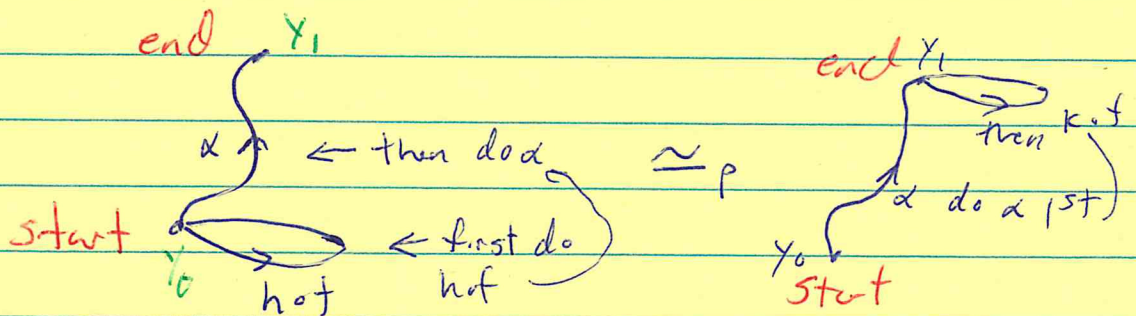 end y₁
α ← then do α
start y₀ ← first do
h∘f h∘f
≃ₚ
end y₁
then k∘f
α do α 1st
y₀
start